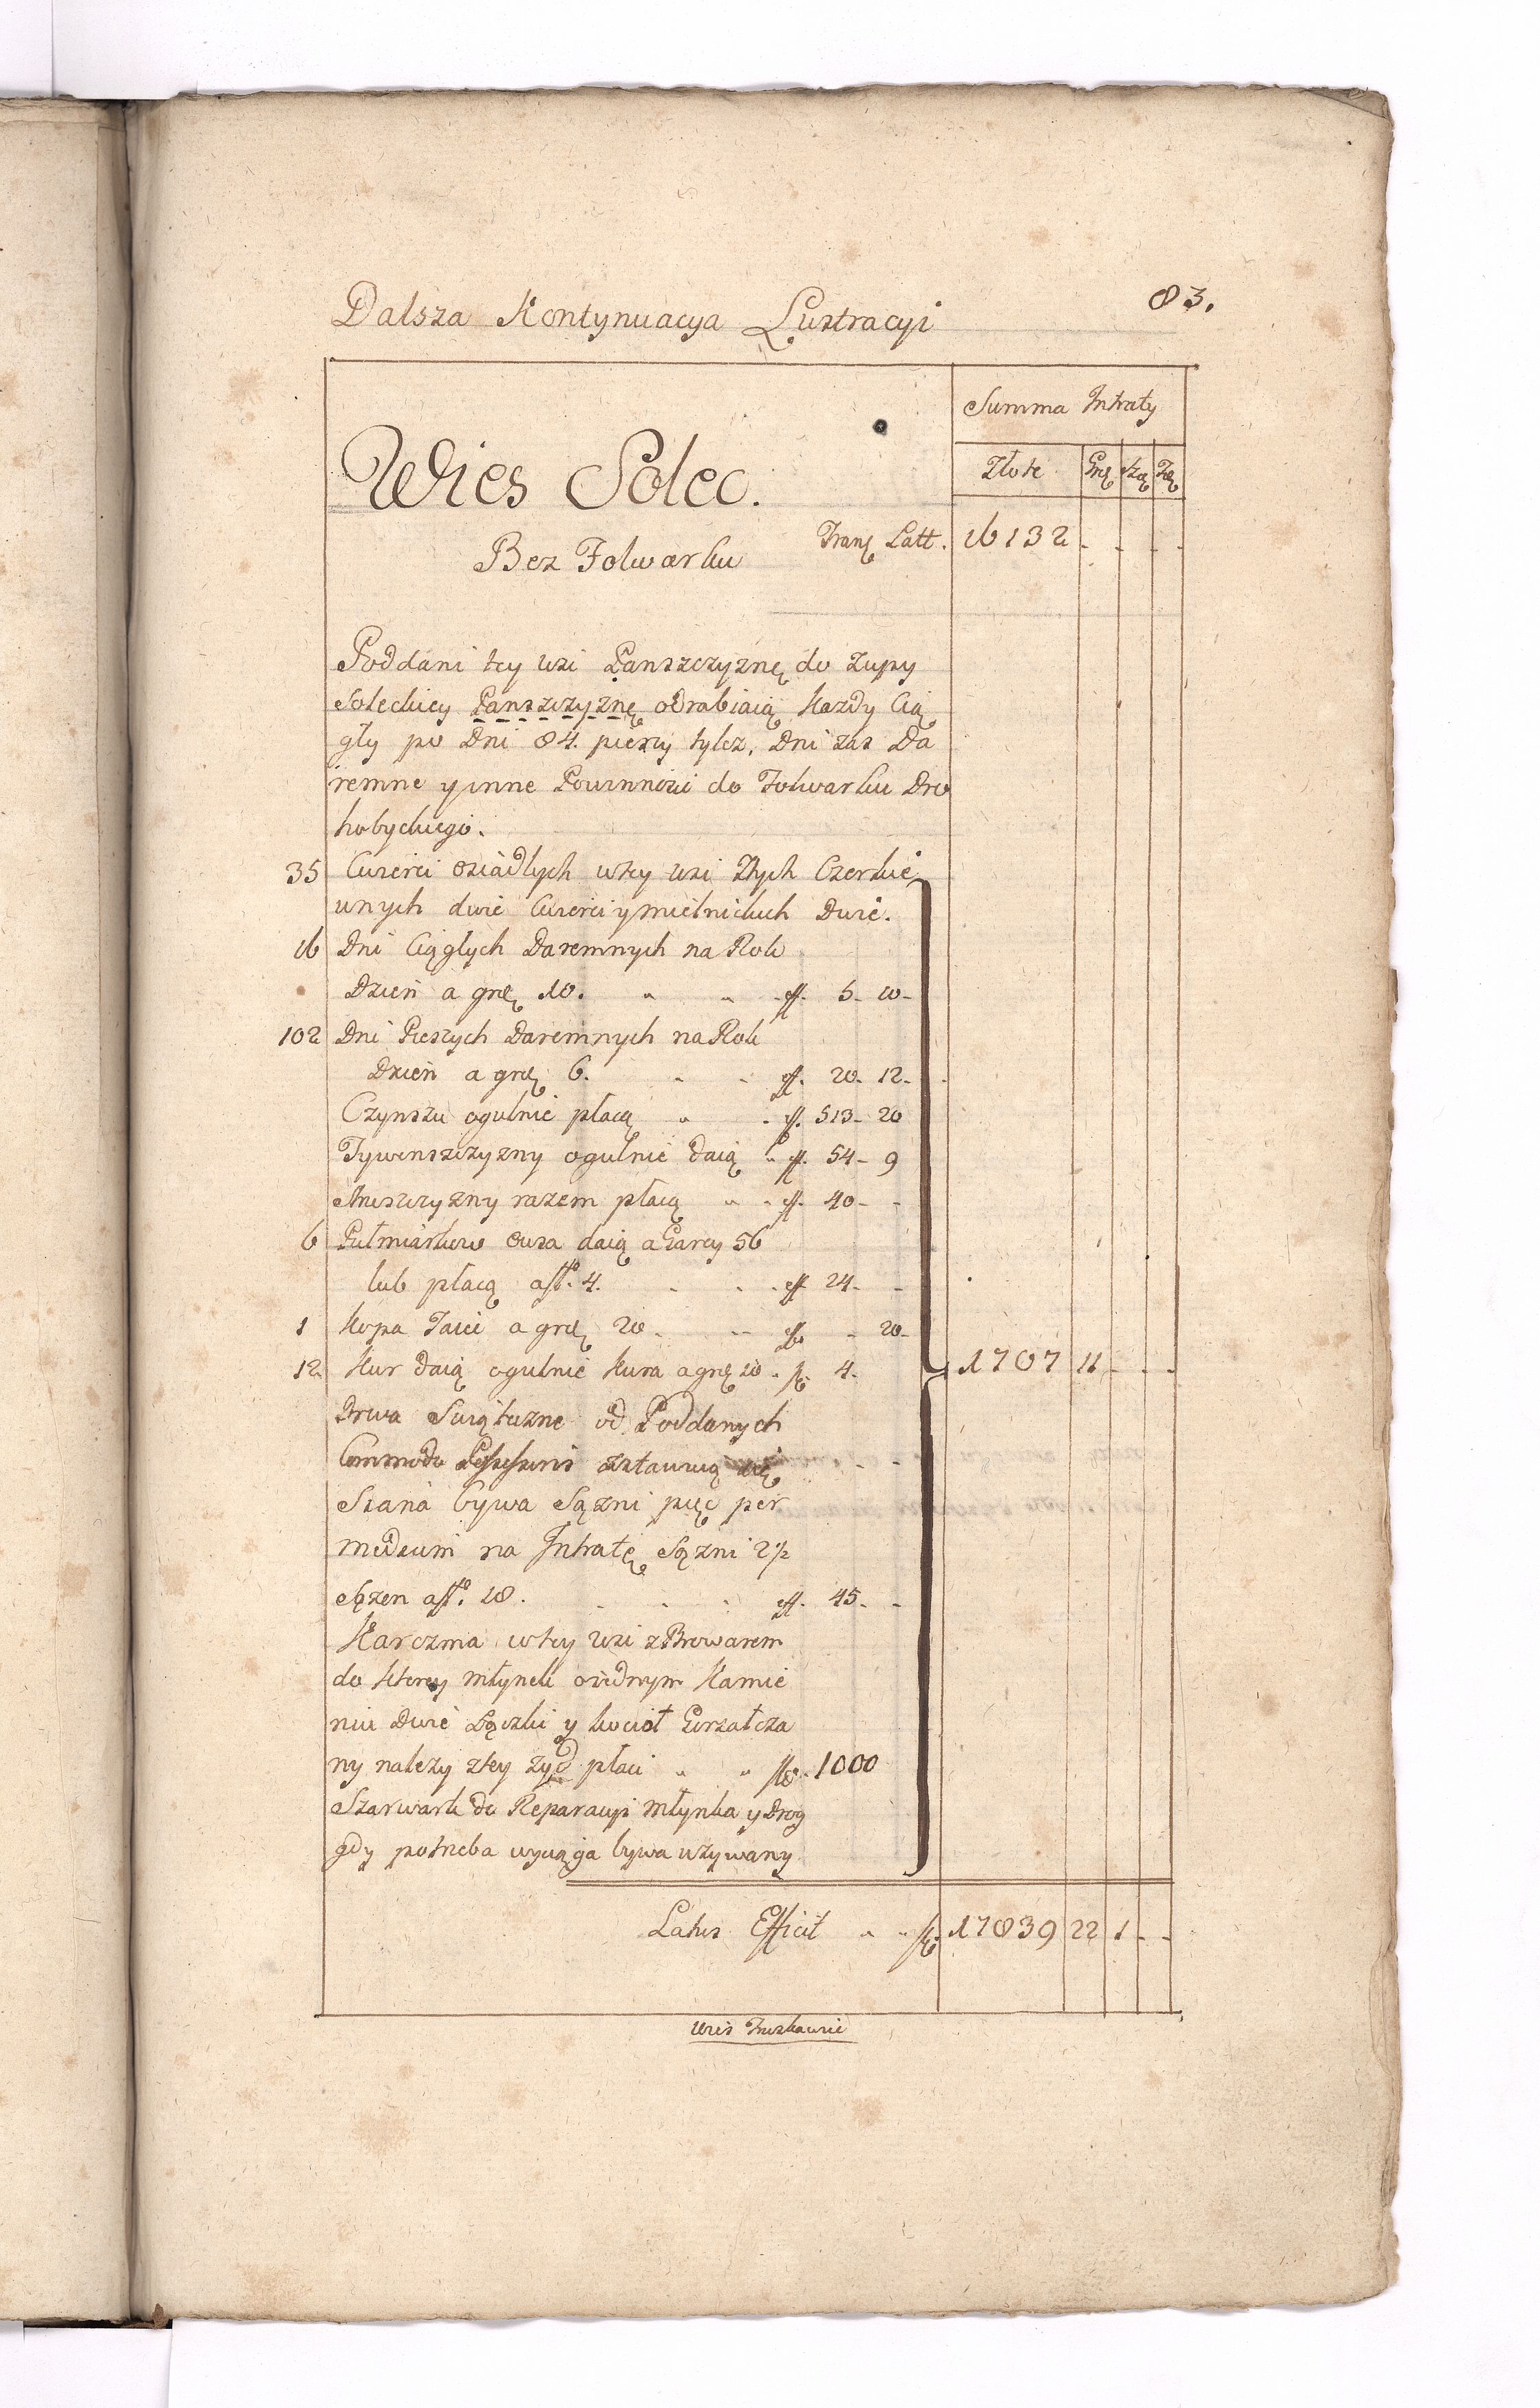 Dalsza Kontynuacya Lustracyi
83.
Summa Intraty
Złote
Wies Solec.
Trans Latt. 16132 - - - -
Bez Folwarku
Poddani tey wsi Panszczyznę do Zupy
Soleckiey Panszczyznę odrabiaią Kazdy Cią
gły po Dni 84. pieszy tylez, Dni zas Da
remne y inne Powinnosci do Folwarku Dro
hobyckiego.
35 Cwierci osiadłych w tey wsi Z tych Czerkie
wnych dwie Cwierci y mielnickich Dwie.
16 Dni Ciągłych Daremnych na Rok
Dzień a grę 10. " " ff. 5 - 10 -
102 Dni Pieszych Daremnych na Rok
Dzień a grę 6. - - ff. 20 - 12 -
Czynszu ogulnie płacą " - ff. 513 - 20
Tywenszczyzny ogulnie daią " ff. 54 - 9
razem płacą " - ff. 40 - -
6 Pułmiarkow owsa daią a Garcy 56
lub płacą a fto. 4. - - - ff 24 - -
1 Kopa Jaiec a grę 20. - - - 20 -
12 Kur daią ogulnie Kura a grę 10 - 4 -
1707 11 - - -
Drwa Swiąteczne od Poddanych
Commodo Possessoris zostawuią się - -
Siana bywa Sązni pięć per
medium na Intratę Sązni 2 1/2
Sązen a fto. 18. - - - ff. 45 - -
Karczma w tey wsi z Browarem
do ktorey młynek o iednym Kamie
niu Dwie Bączki y kocioł Gorzałcza
ny nalezy z tey zyd płaci " " 1000
Szarwark do Reparacyi Młynka y Drog
gdy potrzeba wyciąga bywa uzywany
Latus Efficit " " 17839 22 1 - -
Wies Truskawie